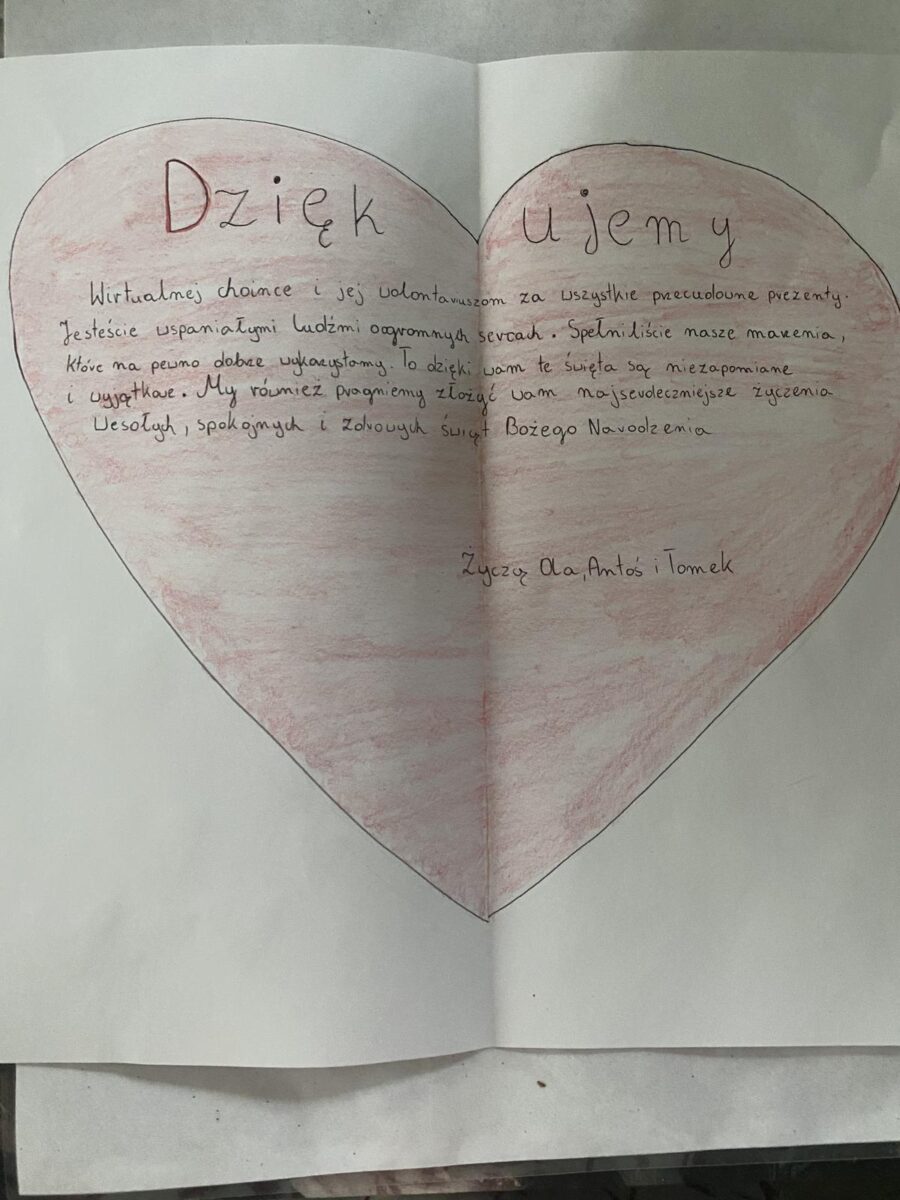 Dziękujemy
Wirtualnej choince i jej wolontariuszom za wszystkie przecudowne prezenty.
Jesteście wspaniałymi ludźmi o ogromnych sercach. Spełniliście nasze marzenia,
które na pewno dobrze wykorzystamy. To dzięki wam te święta są niezapomiane
i wyjątkowe. My również pragniemy złożyć wam najserdeczniejsze życzenia
Wesołych, spokojnych i zdrowych świąt Bożego Narodzenia
Życzą Ola, Antoś i Tomek